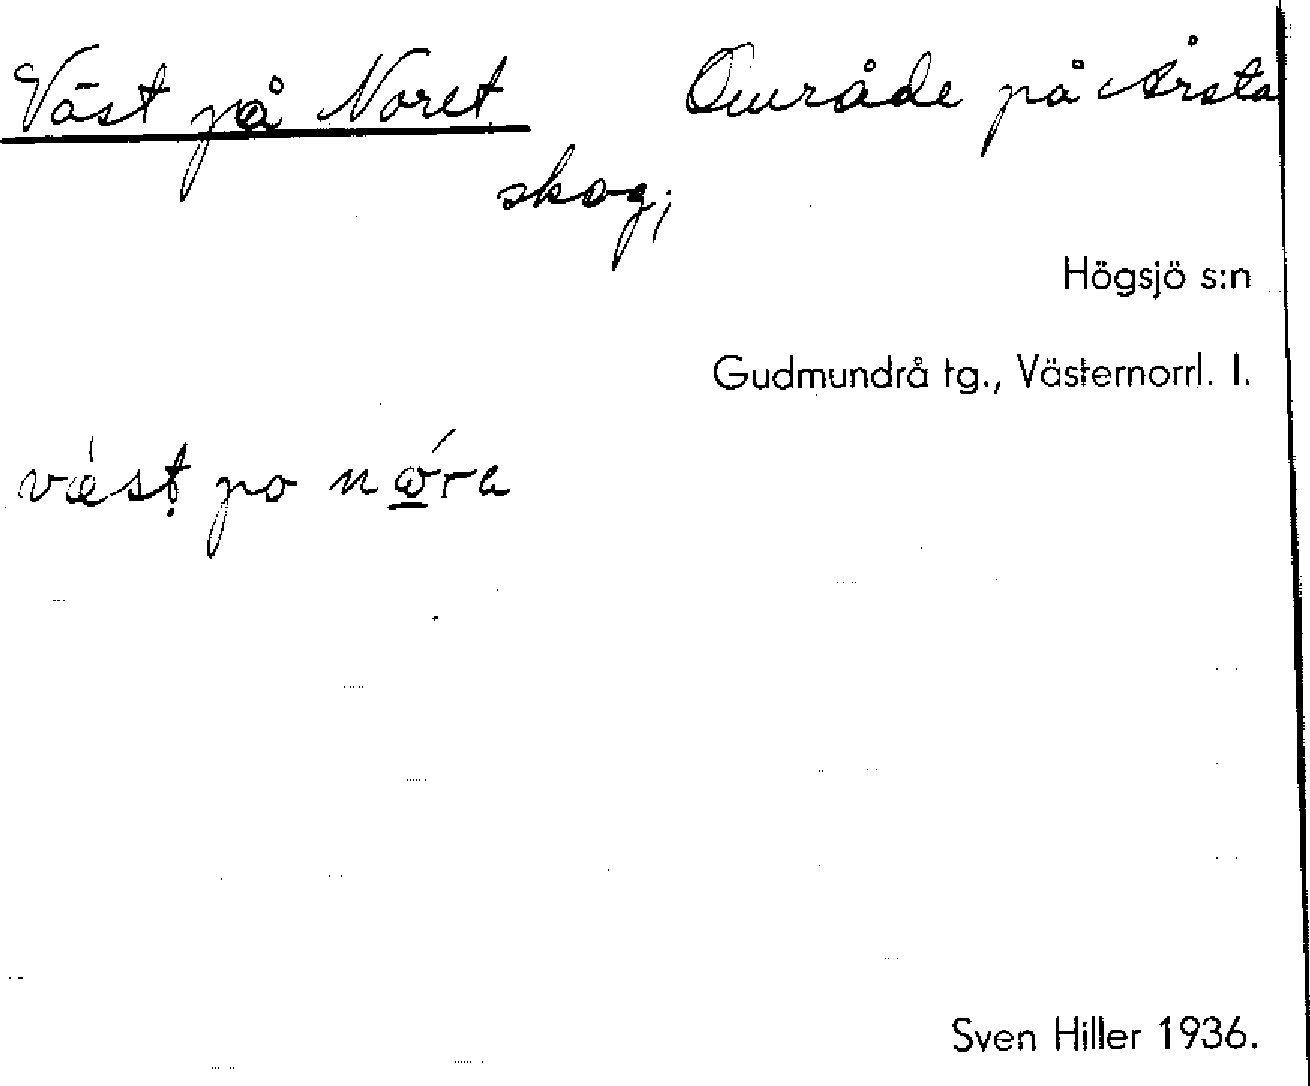 Väst på Noret Område på Årsta
skog;
Högsjö s:n
Gudmundrå tg., Västernorrl. l.
væst po
Sven Hiller 1936.